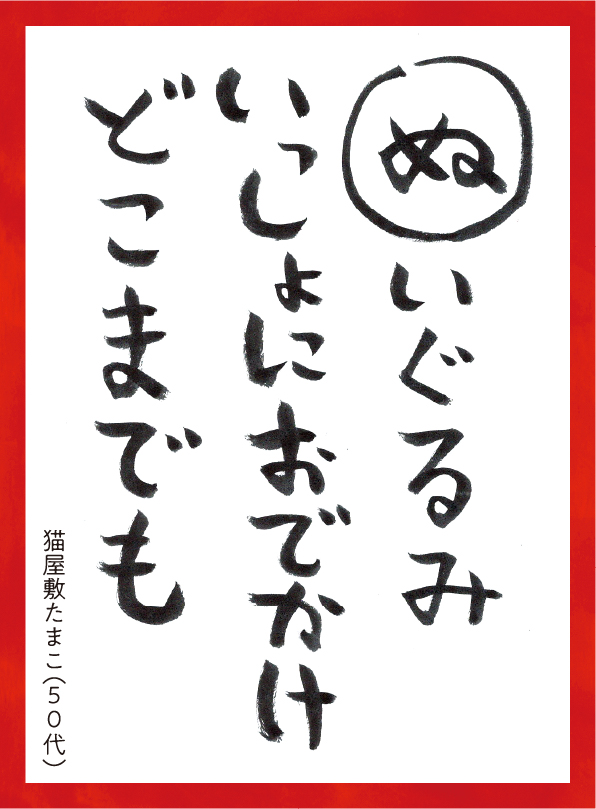 ぬいぐるみ
いっしょにおでかけ
どこまでも
猫屋敷たまこ(50代)